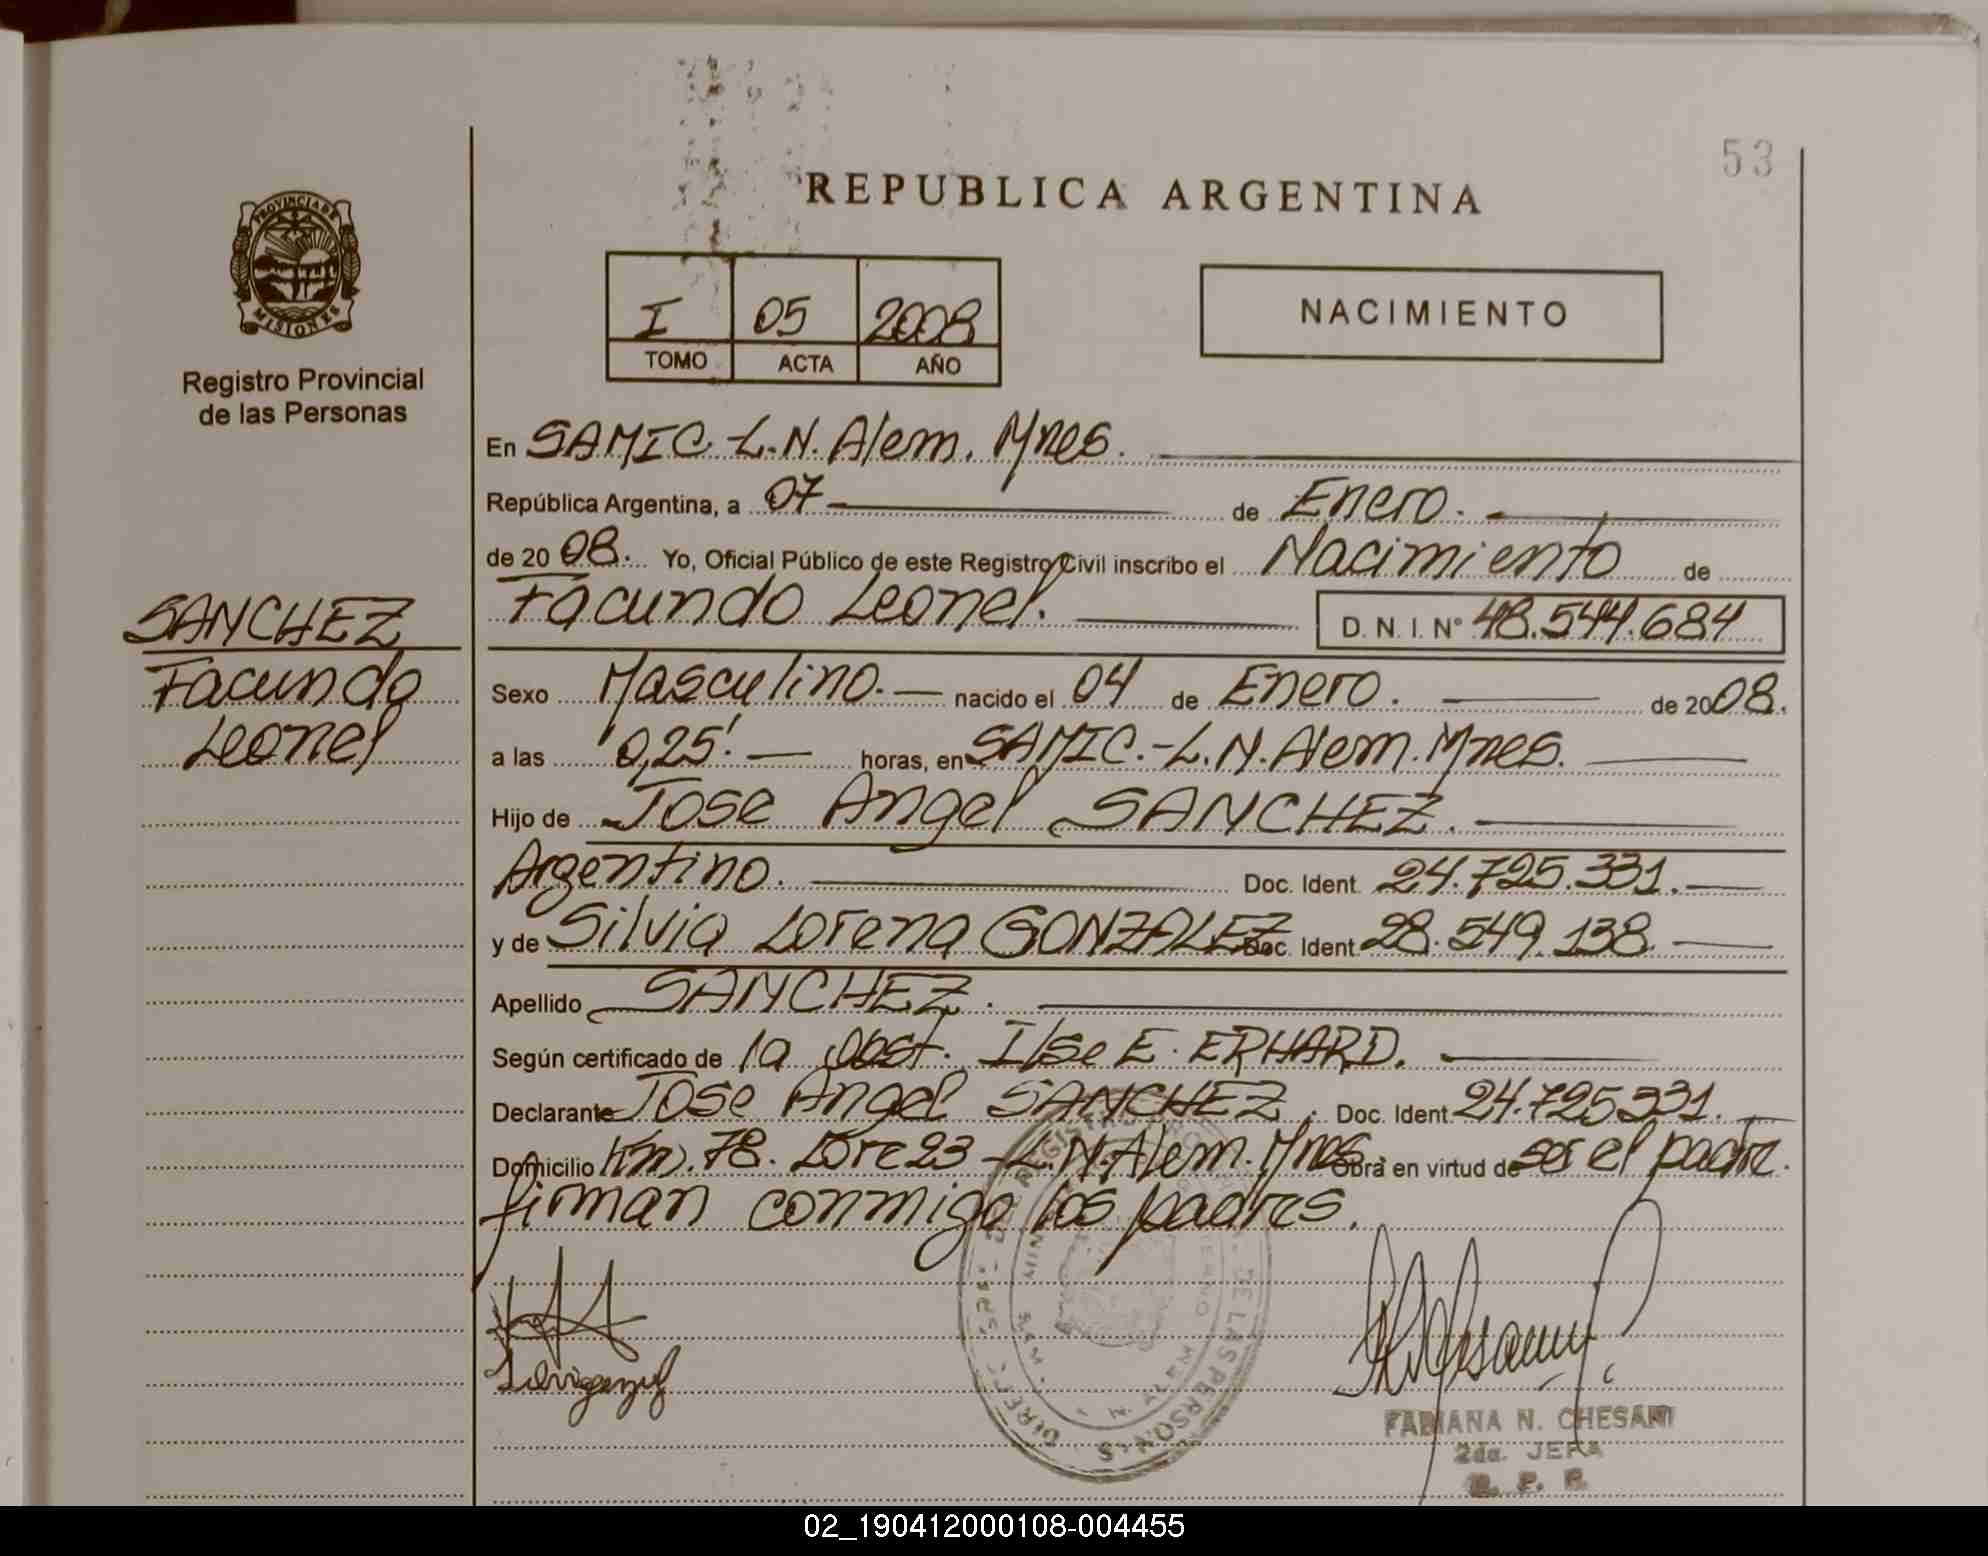 53
REPUBLICA ARGENTINA
PROVINCIA DE
MISIONES
Registro Provincial
de las Personas
I 05 2008
TOMO ACTA AÑO
NACIMIENTO
En SAMIC-L.N. Alem. Mnes.
República Argentina, a 07 de Enero.
de 20 08. Yo, Oficial Público de este Registro Civil inscribo el Nacimiento de
Facundo Leonel. D. N. I. N° 48.544.684
SANCHEZ
Facundo
Leonel
Sexo Masculino. nacido el 04 de Enero. de 2008.
a las 0,25'. horas, en SAMIC.-L.N. Alem. Mnes.
Hijo de Jose Angel SANCHEZ.
Argentino. Doc. Ident. 24.725.331.
y de Silvia Lorena GONZALEZ Doc. Ident 28.549.138.
Apellido SANCHEZ.
Según certificado de la Obst. Ilse E. ERHARD.
Declarante Jose Angel SANCHEZ. Doc. Ident 24.725331.
Domicilio Km. 78. Lote 23-L.N. Alem. Mnes. Obra en virtud de ser el padre.
firman conmigo los padres.
FABIANA N. CHESANI
2da. JEFA
R. P. P.
02_190412000108-004455